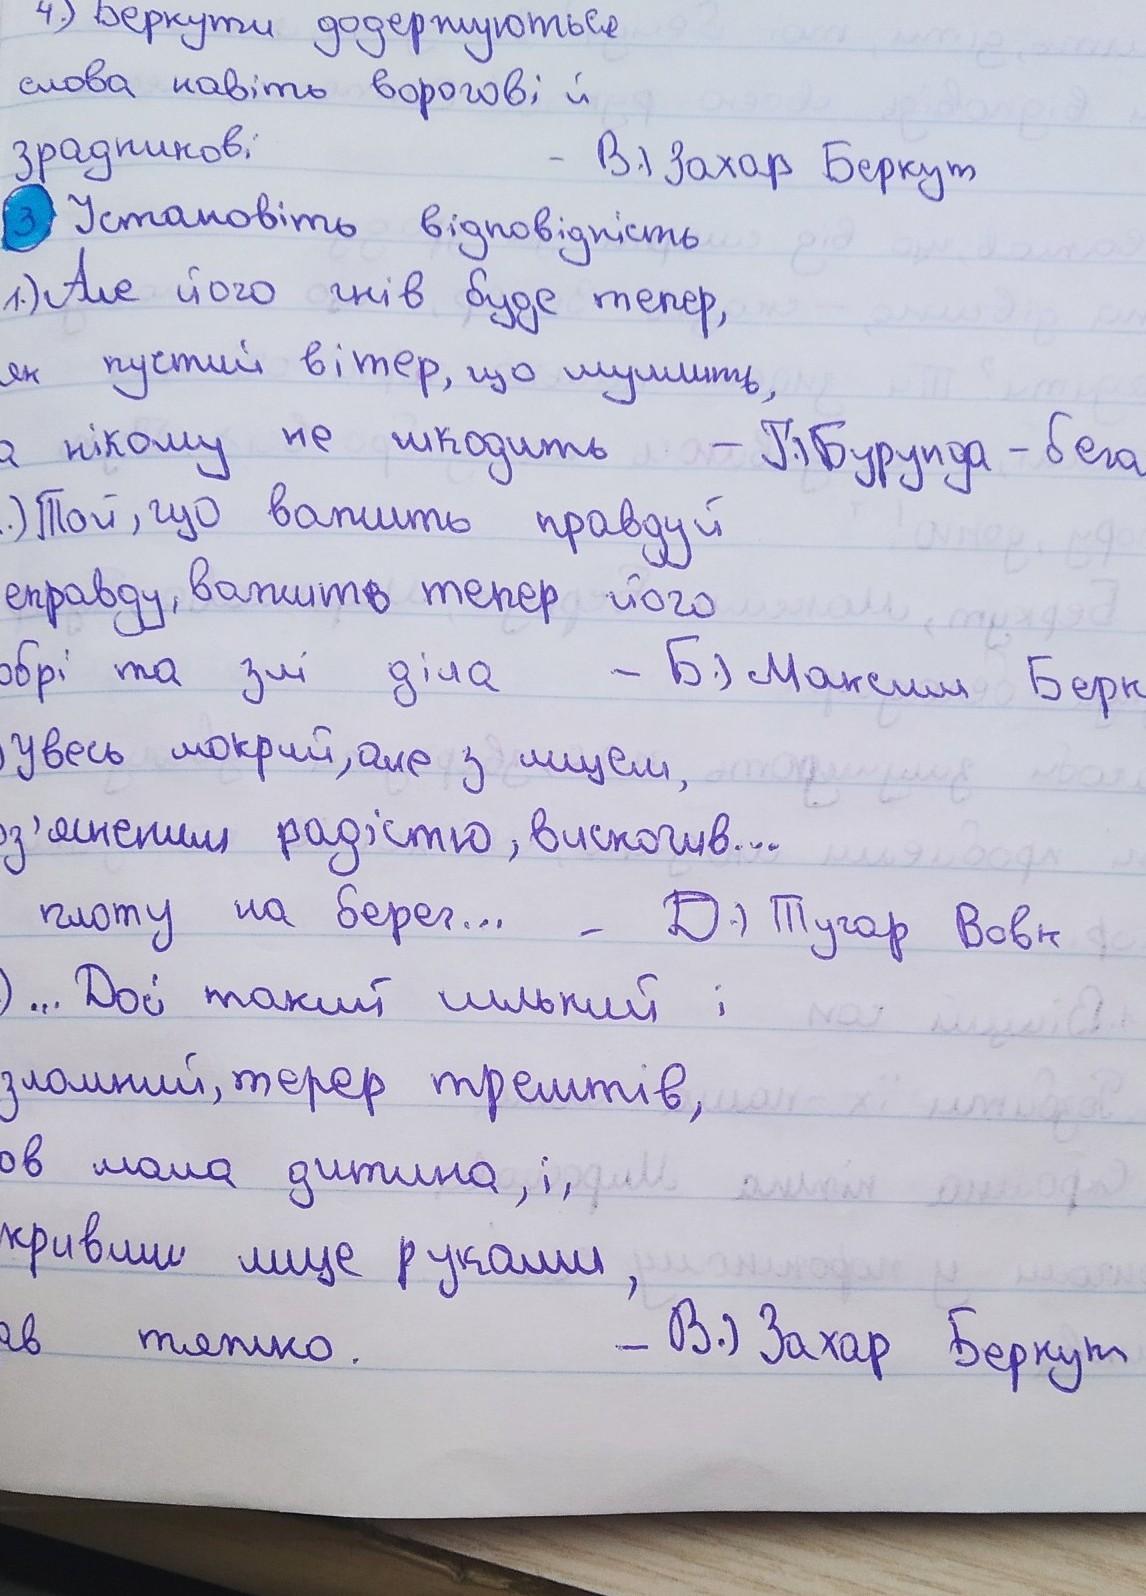 4.) Беркути додержуються
слова навіть ворогові й
зрадникові - В.) Захар Беркут
3 Установіть відповідність
1.) Але його гнів буде тепер,
як пустий вітер, що шумить,
а нікому не шкодить - Г.) Бурунда - бега
.) Той, що важить правду й
еправду, важить тепер його
обрі та злі діла - Б.) Максим Берк
) Увесь мокрий, але з лицем,
оз'ясненим радістю, вискочив...
плоту на берег... - Д.) Тугар Вовк
) ... Досі такий сильний і
зломний, тепер трештів,
ов мала дитина, і,
кривши лице руками,
ав тяжко. - В.) Захар Беркут